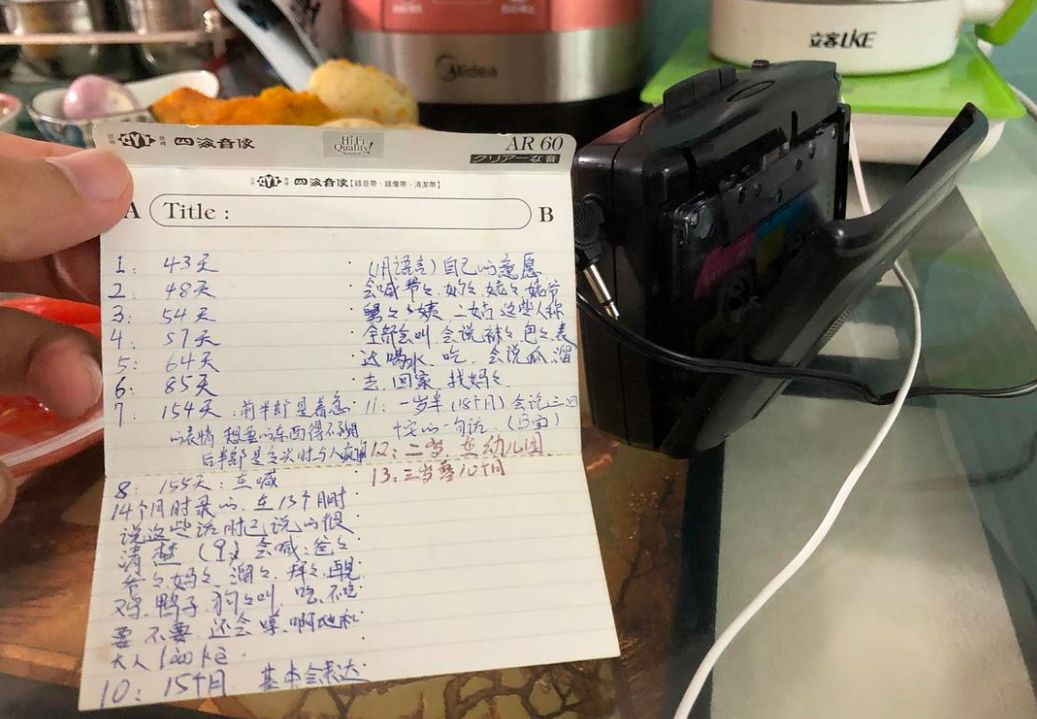 Midea
立客LKE
四海音像
Hi-Fi Quality Sound!
AR 60
クリアーな音
四海音像【錄音帶、錄像帶、清潔帶】
A Title : B
1: 43天
2: 48天
3: 54天
4: 57天
5: 64天
6: 85天
7 154天:前半部是着急
的表情 想要的东西得不到
后半部是 时与人疯
8: 155天:在喊
14个月时录的,在13个月时
说这些话时已说的很
清楚 (9:) 会喊:爸々
爷々、妈々、溜々、拜々、再见
鸡、鸭子、狗々叫、吃、不吃
要 不要 还会 啊
大人
10: 15个月 基本会表达
(用语言)自己的意愿
会喊
舅々 姨 姑 这些人称
全部会叫 会说袜々 包々 表
达喝水、吃、会说 溜
去、回家、找妈々
11: 一岁半(18个月)会说三四
十字的一句话。(B面)
12:二岁,在幼儿园
13:三岁整10个月